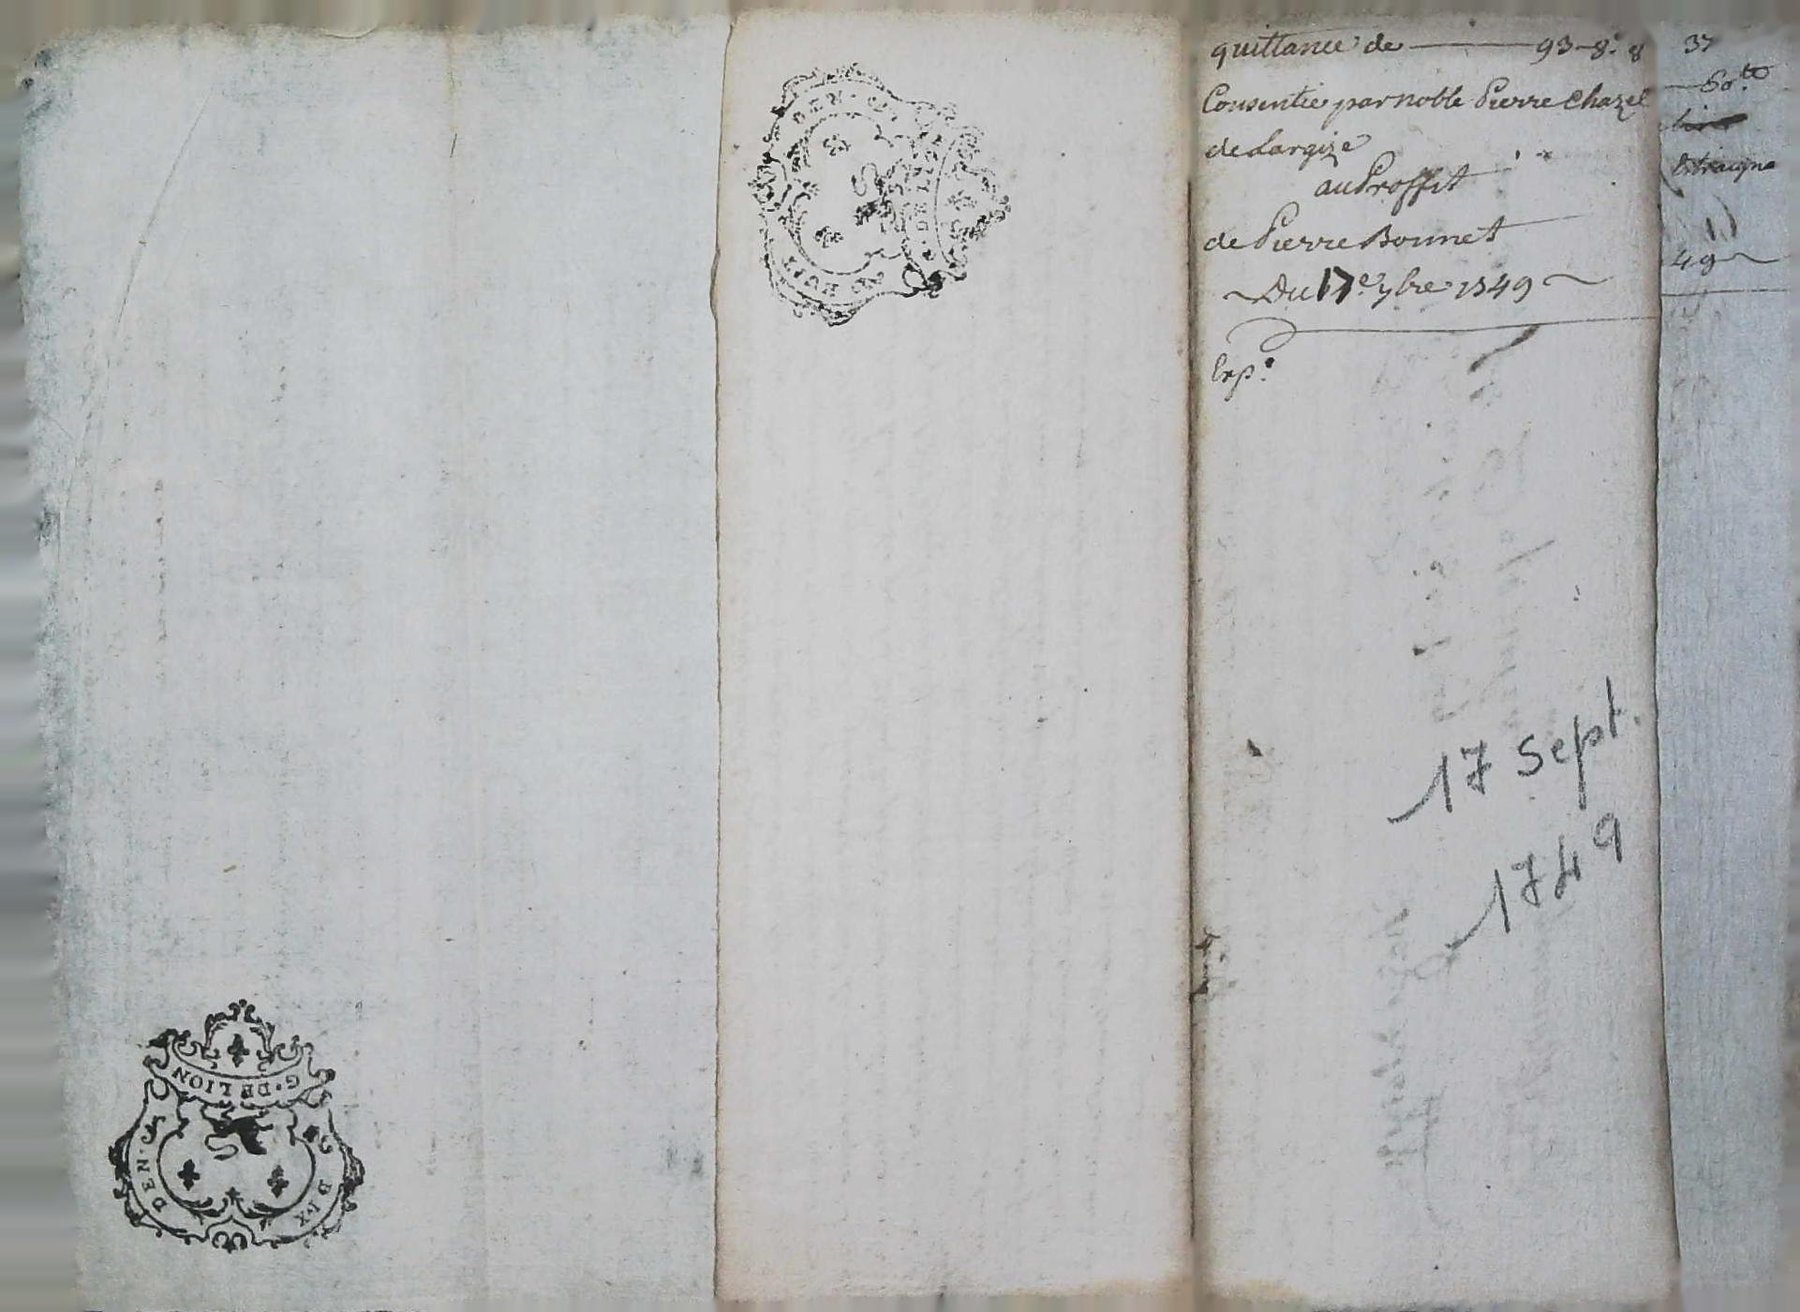 quittance de — 93-8.s 8
Consentie par noble Pierre Chazel
de Largize
au Proffit
de Pierre Bonnet
Du 17e 7bre 1749
Exp.e
17 Sept.
1749
37
60.tt
49
DEN.
G. DE LION
DEN.
G. DE LION
DIX